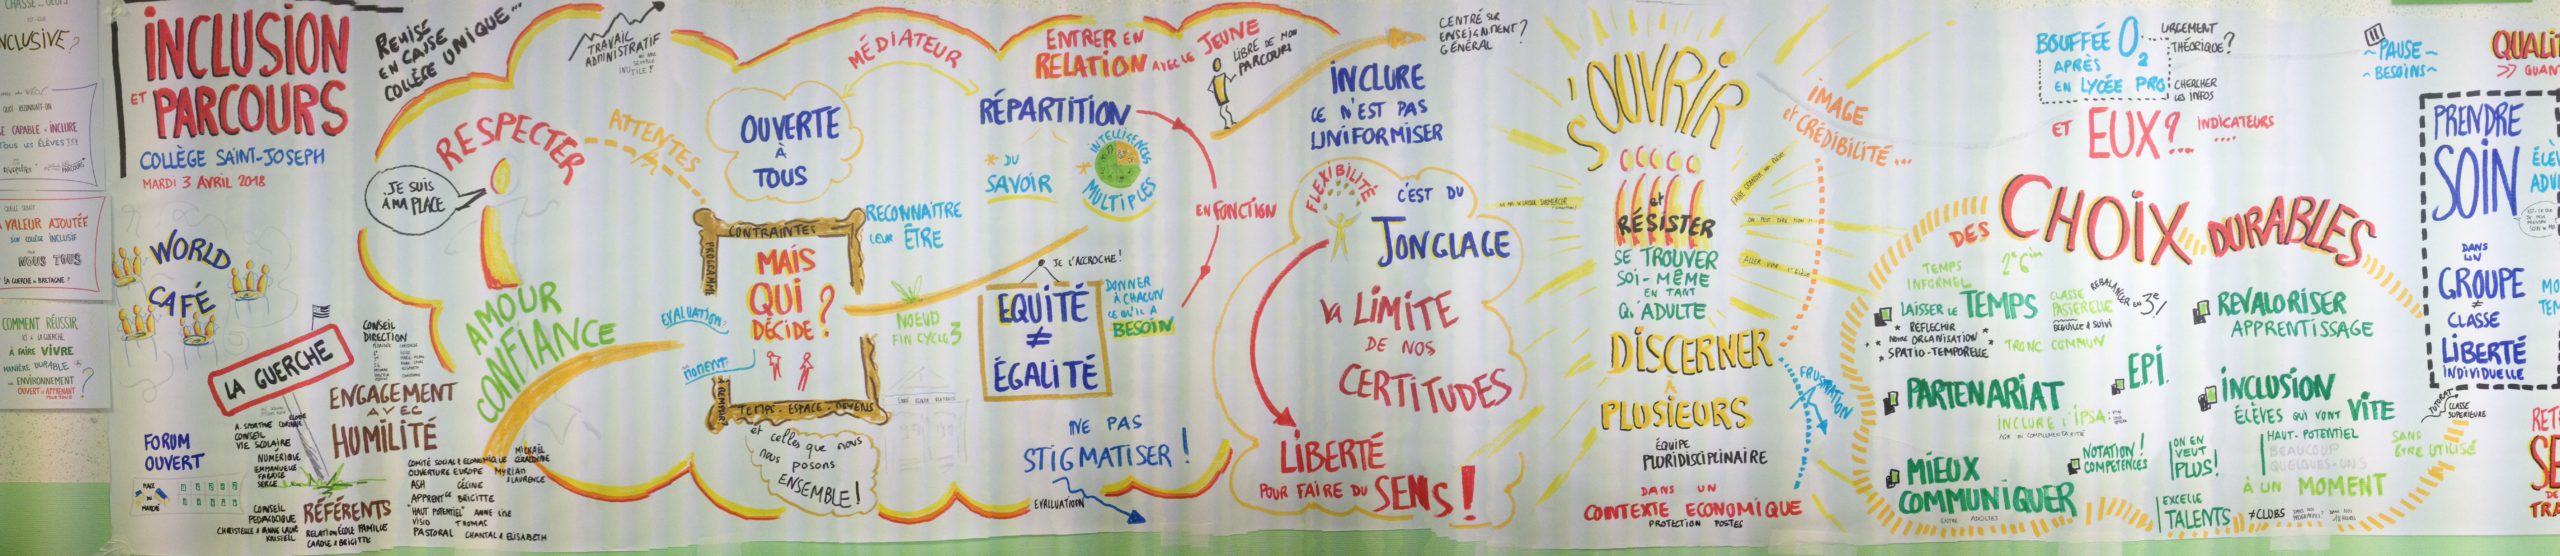 INCLUSIVE ?
CAPABLE D'INCLURE
TOUS LES ÉLÈVES ???
VALEUR AJOUTÉE
NOUS TOUS
COMMENT RÉUSSIR
À FAIRE VIVRE
MANIÈRE DURABLE
ENVIRONNEMENT
OUVERT et APPRENANT
POUR TOUS ?
INCLUSION
ET PARCOURS
COLLÈGE SAINT-JOSEPH
MARDI 3 AVRIL 2018
WORLD
CAFÉ
LA GUERCHE
FORUM
OUVERT
PLACE
DU
MARCHÉ
CONSEIL
DIRECTION
ENGAGEMENT
AVEC
HUMILITÉ
CONSEIL
VIE SCOLAIRE
NUMÉRIQUE
EMMANUELLE
FABRICE
SERGE
CONSEIL
PEDAGOGIQUE
CHRISTELLE & ANNE LAURE
RÉFÉRENTS
RELATION ÉCOLE FAMILLE
CAROLE & BRIGITTE
COMITÉ SOCIAL & ECONOMIQUE
MICKAËL
GÉRALDINE
OUVERTURE EUROPE MYRIAN
& LAURENCE
ASH CÉLINE
APPRENT. BRIGITTE
"HAUT POTENTIEL" ANNE LISE
VISIO THOMAS
PASTORAL CHANTAL & ELISABETH
REMISE
EN CAUSE
COLLÈGE UNIQUE...
TRAVAIL
ADMINISTRATIF
INUTILE ?
RESPECTER
JE SUIS
À MA PLACE
AMOUR
CONFIANCE
ATTENTES
OUVERTE
À
TOUS
MÉDIATEUR
RECONNAÎTRE
LEUR ÊTRE
CONTRAINTES
PROGRAMME
MAIS
QUI
DÉCIDE ?
TEMPS - ESPACE - MOYENS
ÉVALUATION ?
MOMENT
et celles que nous
nous posons
ENSEMBLE !
NOEUD
FIN CYCLE 3
ENTRER EN
RELATION AVEC LE JEUNE
LIBRE DE MON
PARCOURS
RÉPARTITION
* DU
SAVOIR
* INTELLIGENCES
MULTIPLES
EN FONCTION
JE L'ACCROCHE !
EQUITÉ
≠
ÉGALITÉ
DONNER
À CHACUN
CE QU'IL A
BESOIN
NE PAS
STIGMATISER !
EVALUATION
CENTRÉ SUR
ENSEIGNEMENT
GÉNÉRAL ?
INCLURE
CE N'EST PAS
UNIFORMISER
FLEXIBILITÉ
C'EST DU
JONGLAGE
LA LIMITE
DE NOS
CERTITUDES
LIBERTÉ
POUR FAIRE DU SENS !
S'OUVRIR
et
RÉSISTER
SE TROUVER
SOI-MÊME
EN TANT
QU'ADULTE
DISCERNER
À
PLUSIEURS
ÉQUIPE
PLURIDISCIPLINAIRE
DANS UN
CONTEXTE ECONOMIQUE
PROTECTION POSTES
IMAGE
et CRÉDIBILITÉ...
FRUSTRATION
BOUFFÉE O2
APRÈS
EN LYCÉE PRO
LARGEMENT
THÉORIQUE ?
CHERCHER
LES INFOS
ET EUX ?... INDICATEURS
....
DES CHOIX DURABLES
TEMPS
INFORMEL
LAISSER LE TEMPS
* REFLECHIR
* NOTRE ORGANISATION *
* SPATIO-TEMPORELLE
CLASSE
PASSERELLE
TRONC COMMUN
REBALANCER en 3e !
PARTENARIAT
INCLURE L'IPSA
E.P.I.
MIEUX
COMMUNIQUER
ENTRE ADULTES
NOTATION !
COMPETENCES
ON EN
VEUT
PLUS !
EXCELLE
TALENTS
≠ CLUBS
REVALORISER
APPRENTISSAGE
INCLUSION
ÉLÈVES QUI VONT VITE
HAUT-POTENTIEL
BEAUCOUP
QUELQUES-UNS
À UN MOMENT
SANS
ÊTRE UTILISÉ
TUTORAT
CLASSE
SUPERIEURE
~ PAUSE ~
~ BESOINS ~
PRENDRE
SOIN
DANS
UN
GROUPE
≠
CLASSE
LIBERTÉ
INDIVIDUELLE